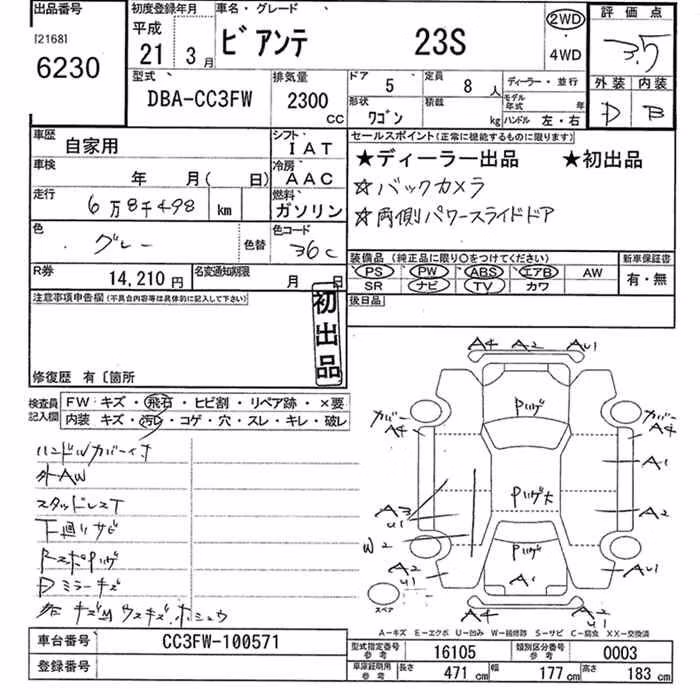 出品番号
[2168]
6230
初度登録年月
平成
21年 3月
車名・グレード
ビアンテ 23S
2WD
4WD
評価点
3.5
外装 内装
D B
型式
DBA-CC3FW
排気量
2300 CC
ドア 5
定員 8 人
形状 ワゴン
積載 kg
ディーラー・並行
モデル年式 年
ハンドル 左・右
車歴 自家用
シフト IAT
車検 年 月( 日)
冷房 AAC
走行 6万8千498 km
燃料 ガソリン
色 グレー
色替
色コード 36C
R券 14,210円
名変通知期限 月 日
セールスポイント(正常に機能するものに限ります)
★ディーラー出品 ★初出品
☆バックカメラ
☆両側パワースライドドア
装備品(純正品に限り○をつけてください)
新車保証書
PS PW ABS エアB AW
SR ナビ TV カワ
有・無
後日品
注意事項申告欄(不具合内容等は具体的に記入して下さい)
初出品
修復歴 有〔箇所
検査員記入欄
FW キズ・飛石・ヒビ割・リペア跡・×要
内装 キズ・汚レ・コゲ・穴・スレ・キレ・破レ
ハンドルカバー付
外AW
スタッドレスT
下廻りサビ
RスポPハゲ
Dミラーキズ
キズ凹 ウスキズ ホシュウ
A4 A2 AU1
Pハゲ
カバー A4
カバー A4
A1
A3 U1
Pハゲ大
A2
W2
Pハゲ
A2 U1
A1
AU1
スペア
A4
A2 U1
A-キズ E-エクボ U-凹み W-補修跡 S-サビ C-腐食 XX-交換済
車台番号 CC3FW-100571
登録番号
型式指定番号 参考 16105
類別区分番号 参考 0003
車庫証明用 参考 長さ 471 cm 幅 177 cm 高さ 183 cm